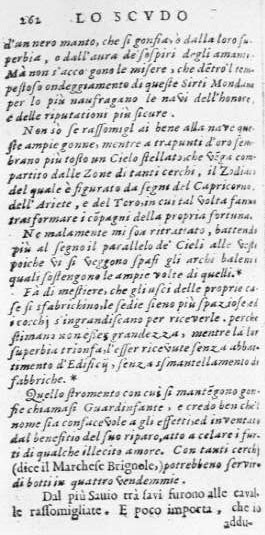 262 LO SCVDO
d'un nero manto, che si gonfia, ò dalla loro su-
perbia, o dall'aura de' sospiri degli amanti.
Mà non s'accogono le misere, che dẽtro'l tem-
pestoso ondeggiamento di queste Sirti Mondane
per lo più naufragano le navi dell'honore,
e delle riputationi più sicure.
Non sò se rassomigl ai bene alla nave que-
ste ampie gonne; mentre a trapunti d'oro sem-
brano più tosto un Cielo stellato, che vẽga com-
partito dalle Zone di tanti cerchi, il Zodiaco
del quale è figurato da segni del Capricorno,
dell'Ariete, e del Toro, in cui tal volta fansi
trasformare i cõpagni della propria fortuna.
Ne malamente mi sõa ritrattato, battendo
più al segno il parallelo de' Cieli alle vesti
poiche vi si veggono spassi gli archi baleni
quali sostengono le ampie volte di quelli.*
Fà di mestiere, che gli usci delle proprie ca-
se si sfabrichino, le sedie sieno più spaziose, ed
i cocchi s'ingrandiscano per riceverle. perche
stimano non esser grandezza, mentre la lor
superbia trionfa, l'esser ricevute senza abbat-
timento d'Edificij, senza ismantellamento di
fabbriche.*
Quello stromento con cui si mantẽgono gon-
fie chiamasi Guardinfante, e credo ben che'l
nome sia confacevole a gli effetti, ed inventato
dal beneficio del suo riparo, atto a celare i fur-
ti di qualche illecito amore. Con tanti cerchi
(dice il Marchese Brignole,) potrebbeno servire
di botti in quattro vendemmie.
Dal più Savio trà savi furono alle caval-
le rassomigliate. E poco importa, che io
addu-